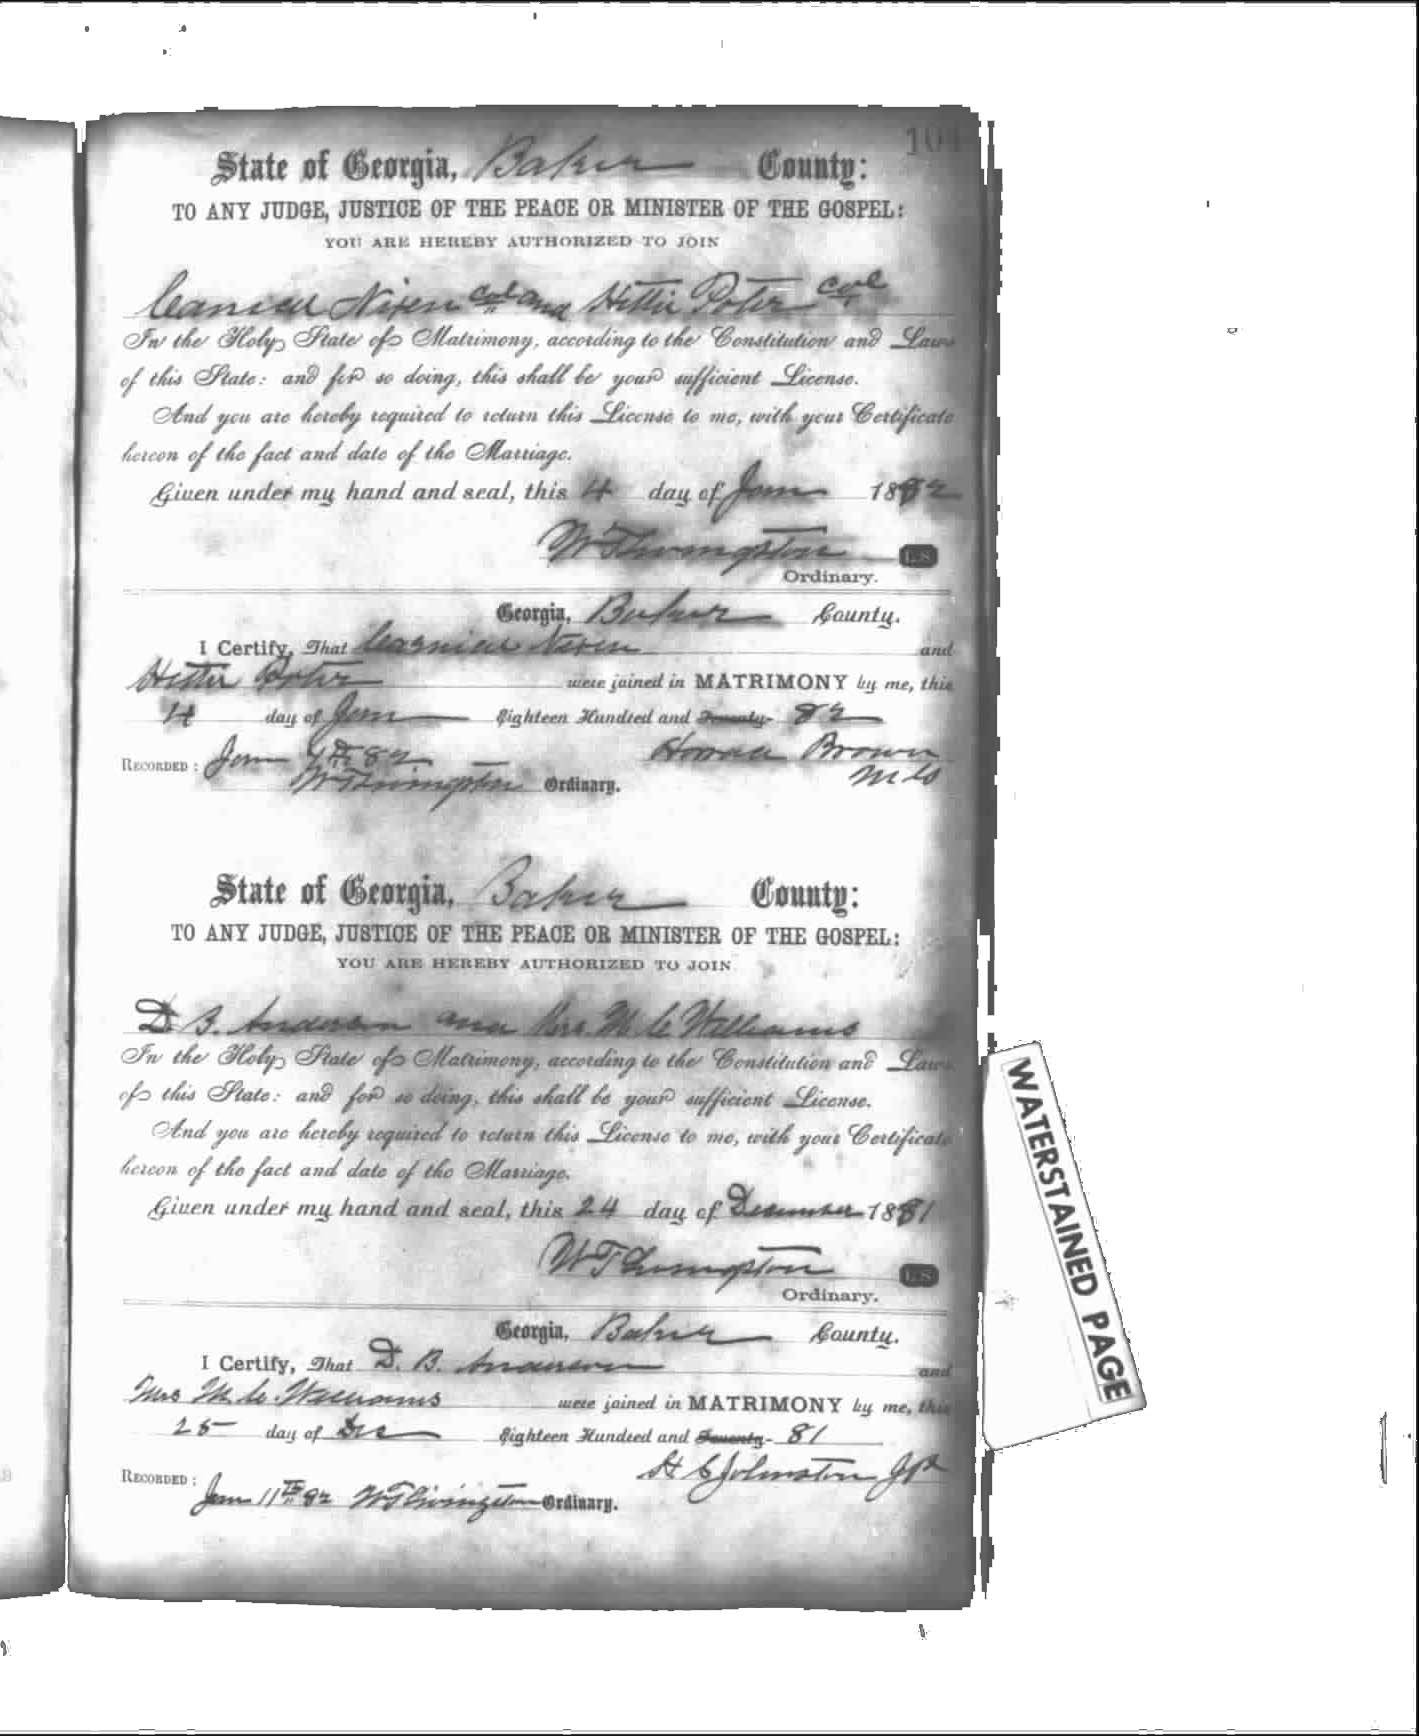 State of Georgia, Baker County:
TO ANY JUDGE, JUSTICE OF THE PEACE OR MINISTER OF THE GOSPEL:
YOU ARE HEREBY AUTHORIZED TO JOIN
Nixen col and Hettie Poter col
In the Holy State of Matrimony, according to the Constitution and Laws
of this State: and for so doing, this shall be your sufficient License.
And you are hereby required to return this License to me, with your Certificate
hereon of the fact and date of the Marriage.
Given under my hand and seal, this 4 day of Jan 1882
W T Livingston L.S.
Ordinary.
Georgia, Baker County.
I Certify, That Nixen and
Hettie Poter were joined in MATRIMONY by me, this
day of Jan Eighteen Hundred and Seventy- 82
Horace Brown
RECORDED: Jan 82
W T Livingston Ordinary.
State of Georgia, Baker County:
TO ANY JUDGE, JUSTICE OF THE PEACE OR MINISTER OF THE GOSPEL:
YOU ARE HEREBY AUTHORIZED TO JOIN
D. B. Anderson and Mrs. M. C. Williams
In the Holy State of Matrimony, according to the Constitution and Laws
of this State: and for so doing, this shall be your sufficient License.
And you are hereby required to return this License to me, with your Certificate
hereon of the fact and date of the Marriage.
Given under my hand and seal, this 24 day of December 1881
W T Livingston L.S.
Ordinary.
Georgia, Baker County.
I Certify, That D. B. Anderson and
Mrs M. C. Williams were joined in MATRIMONY by me, this
25 day of Dec Eighteen Hundred and Seventy- 81
H C Johnston
RECORDED: Jan 11th 82 W T Livingston Ordinary.
WATERSTAINED PAGE